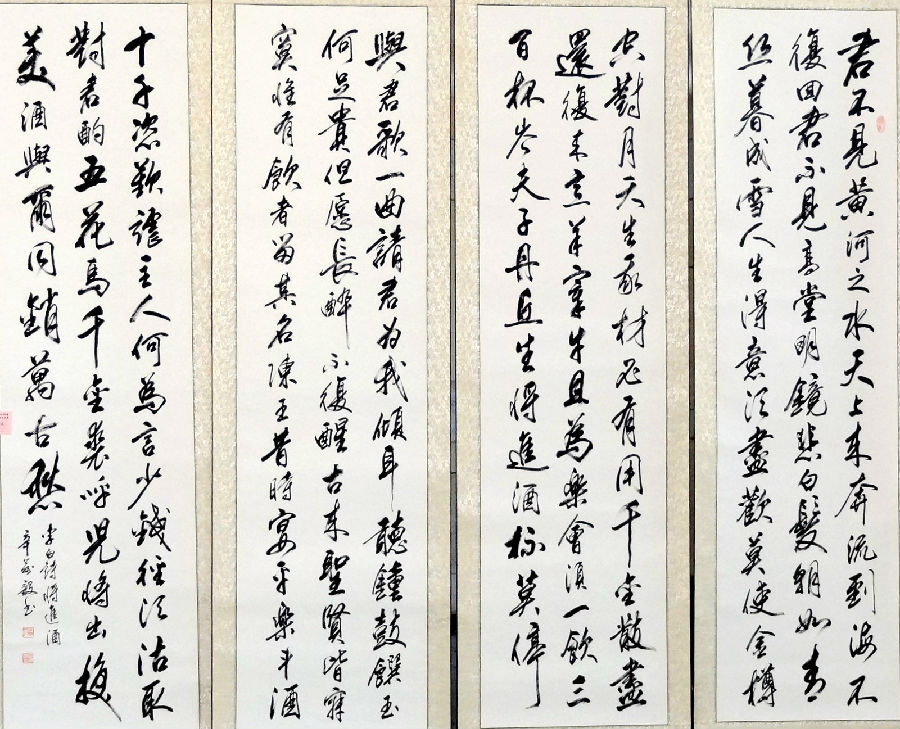 君不見黃河之水天上来奔流到海不
復回君不見高堂明鏡悲白髮朝如青
丝暮成雪人生得意須盡歡莫使金樽
空對月天生我材必有用千金散盡
還復来烹羊宰牛且為樂會須一飲三
百杯岑夫子丹丘生將進酒杯莫停
與君歌一曲請君为我傾耳聽鐘鼓饌玉
何足貴但愿長醉不復醒古来聖賢皆寂
寞惟有飲者留其名陳王昔時宴平樂斗酒
十千恣歡謔主人何為言少錢徑須沽取
對君酌五花馬千金裘呼兒將出換
美酒與爾同銷萬古愁
李白詩將進酒